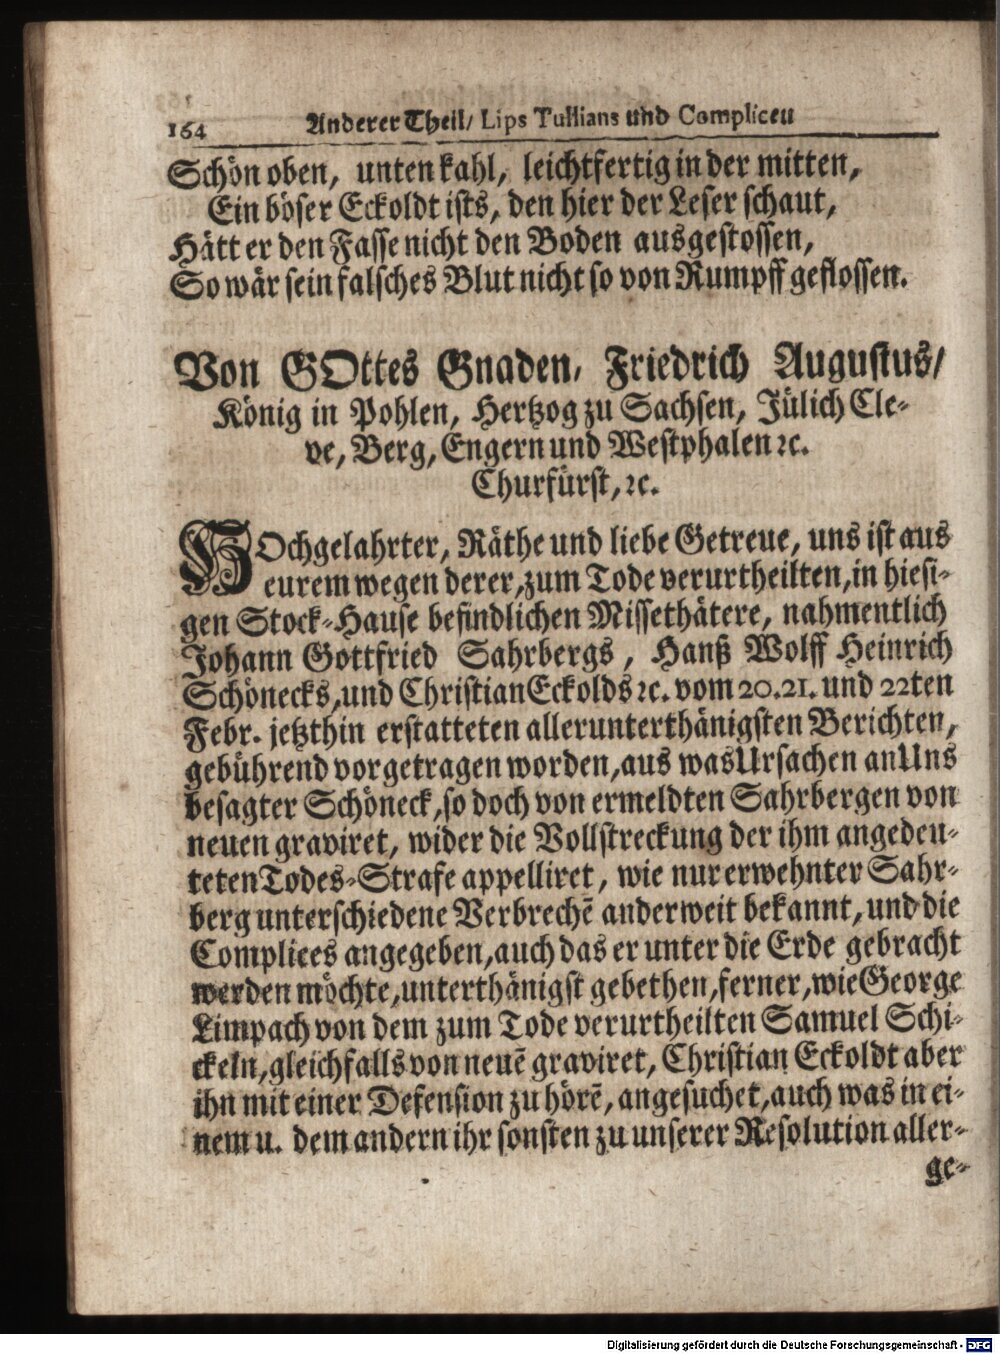 164 Anderer Theil/ Lips Tullians und Complicen
Schön oben, unten kahl, leichtfertig in der mitten,
Ein böser Eckoldt ists, den hier der Leser schaut,
Hätt er den Fasse nicht den Boden ausgestossen,
So wär sein falsches Blut nicht so von Rumpff geflossen.
Von GOttes Gnaden, Friedrich Augustus/
König in Pohlen, Hertzog zu Sachsen, Jülich Cle-
ve, Berg, Engern und Westphalen ꝛc.
Churfürst, ꝛc.
HOchgelahrter, Räthe und liebe Getreue, uns ist aus
eurem wegen derer, zum Tode verurtheilten, in hiesi-
gen Stock-Hause befindlichen Missethätere, nahmentlich
Johann Gottfried Sahrbergs, Hanß Wolff Heinrich
Schönecks, und Christian Eckolds ꝛc. vom 20. 21. und 22ten
Febr. jetzthin erstatteten allerunterthänigsten Berichten,
gebührend vorgetragen worden, aus was Ursachen an Uns
besagter Schöneck, so doch von ermeldten Sahrbergen von
neuen graviret, wider die Vollstreckung der ihm angedeu-
teten Todes-Strafe appelliret, wie nur erwehnter Sahr-
berg unterschiedene Verbrechē anderweit bekannt, und die
Complices angegeben, auch das er unter die Erde gebracht
werden möchte, unterthänigst gebethen, ferner, wie George
Limpach von dem zum Tode verurtheilten Samuel Schi-
ckeln, gleichfalls von neuē graviret, Christian Eckoldt aber
ihn mit einer Defension zu hörē, angesuchet, auch was in ei-
nem u. dem andern ihr sonsten zu unserer Resolution aller-
ge-
Digitalisierung gefördert durch die Deutsche Forschungsgemeinschaft - DFG